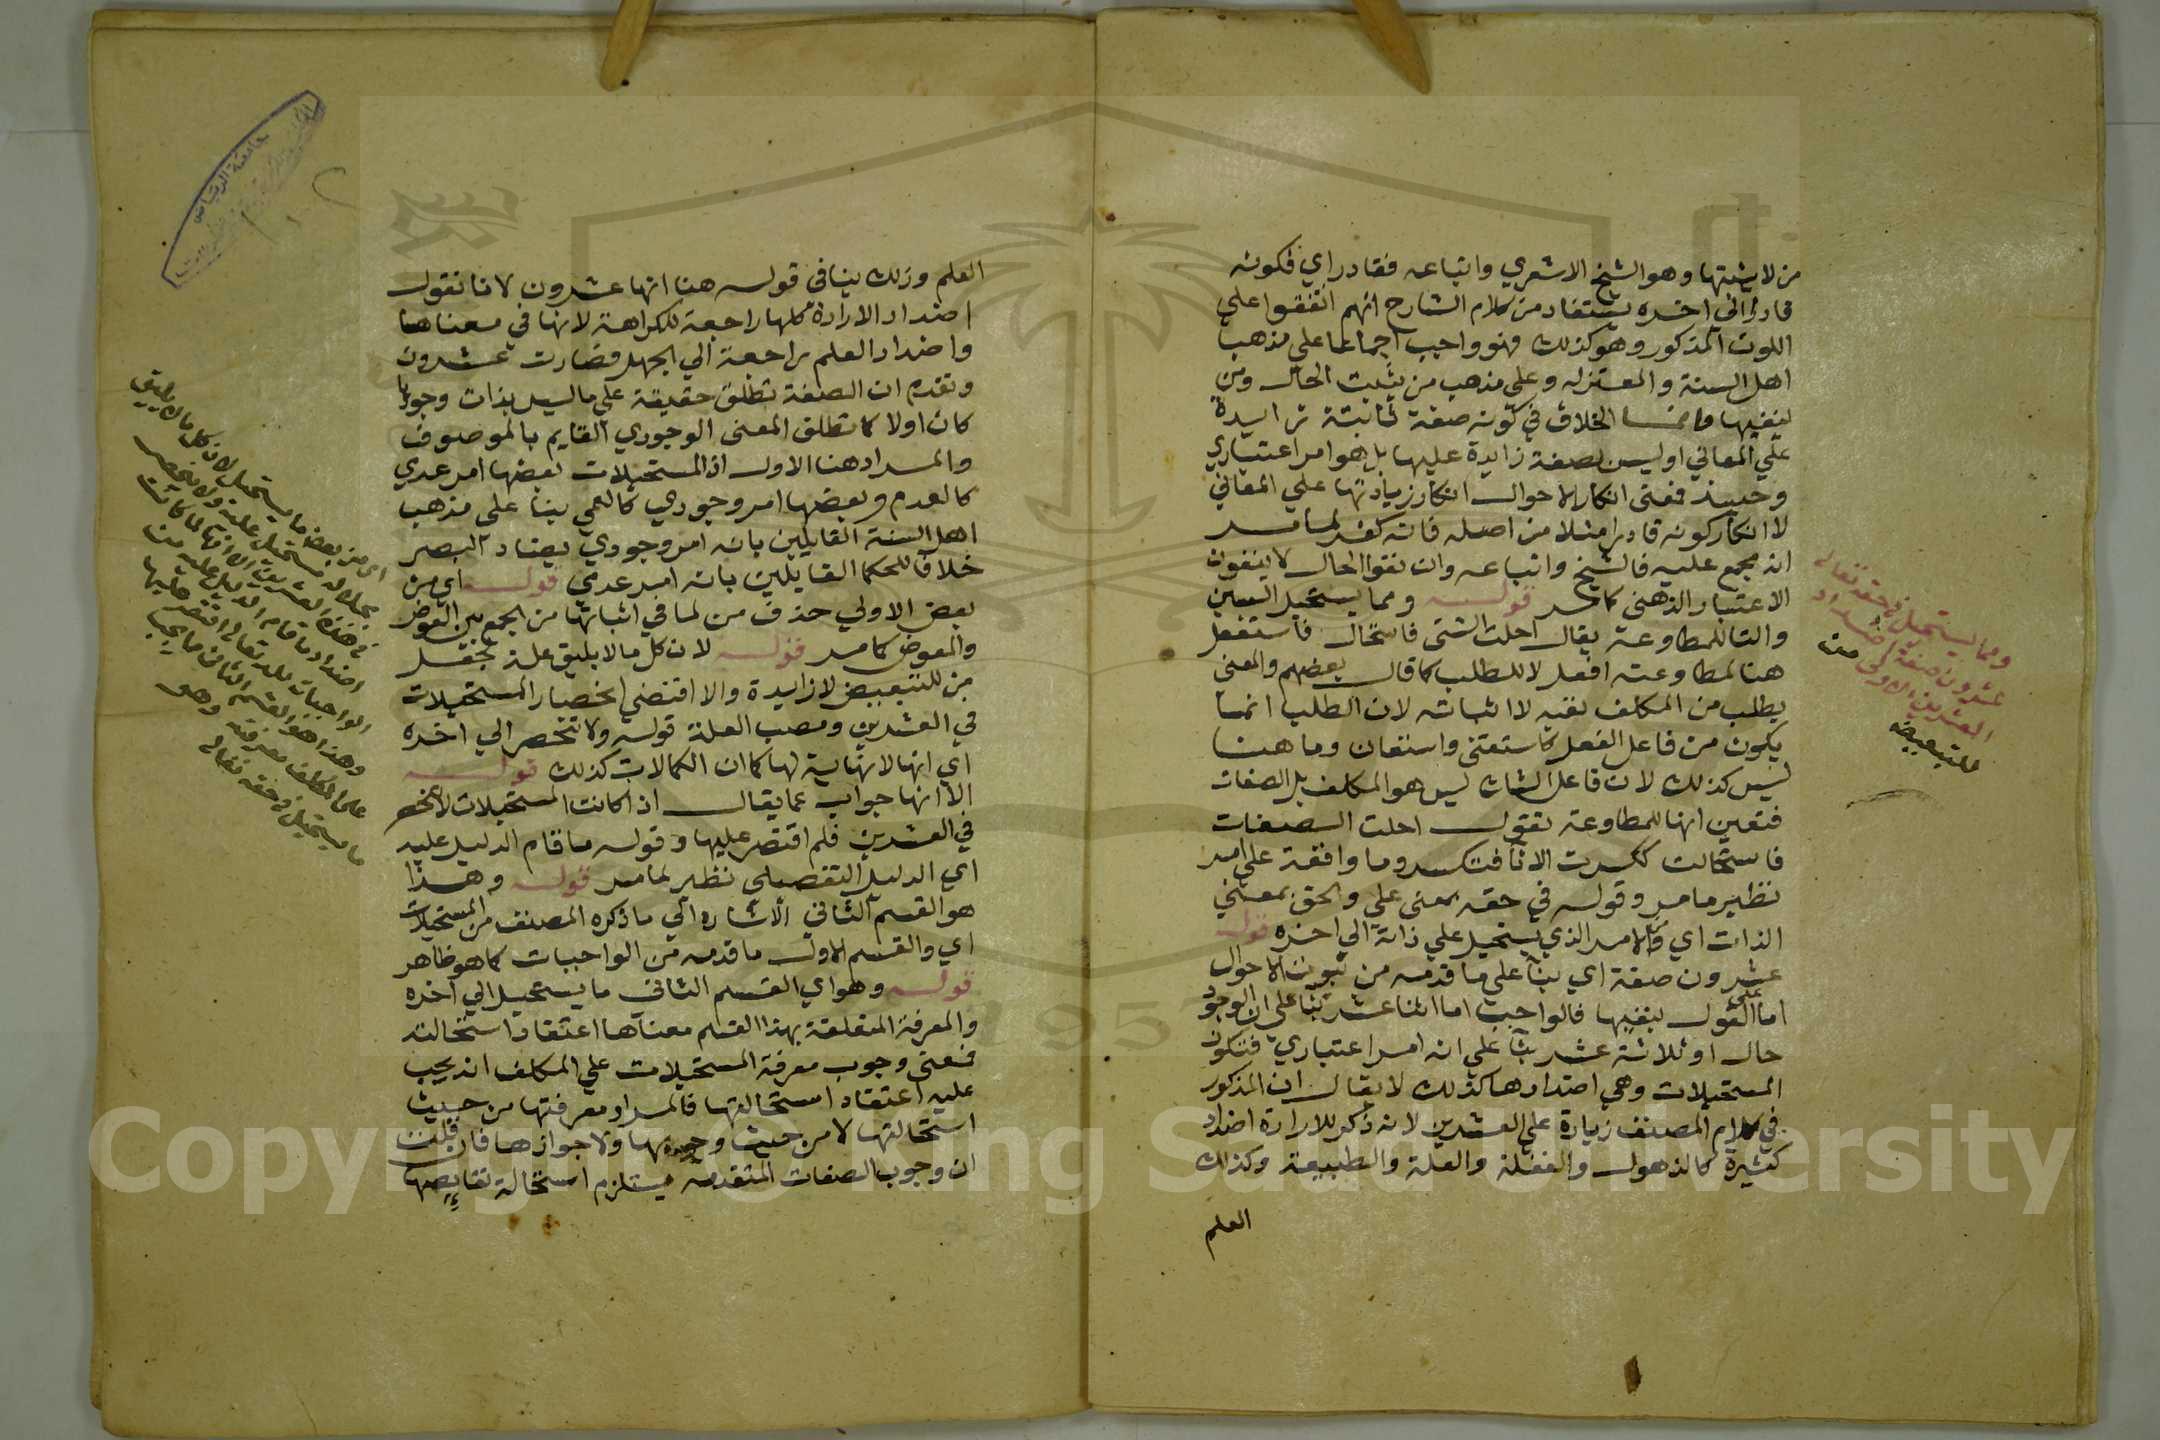 من لا يثبتها وهو الشيخ الاشعري واتباعه فقادر اي فكونه
قادرا الى اخره يستفاد من كلام الشارح انهم اتفقوا علي
الكون المذكور وهو كذلك فهو واجب اجماعا علي مذهب
اهل السنة والمعتزله وعلي مذهب من يثبت الحال ومن
ينفيها وانما الخلاف في كونه صفة ثابتة زايدة
علي المعاني او ليس بصفة زايدة عليها بل هو امر اعتباري
وحينيذ فمعنى انكار الاحوال انكار زيادتها علي المعاني
لا انكار كونه قادرا مثلا من اصله فانه كفر لما مر
انه مجمع عليه فالشيخ واتباعه وان نفوا الحال لا ينفون
الاعتبار الذهني كما مر قوله ومما يستحيل السين
والتا للمطاوعة يقال احلت الشي فاستحال فاستفعل
هنا لمطاوعته افعل لا للطلب كما قال بعضهم والمعنى
يطلب من المكلف نفيه لا اثباته لان الطلب انما
يكون من فاعل الفعل كاستعتى واستعان وما هنا
ليس كذلك لان فاعل الشان ليس هو المكلف بل الصفات
فتعين انها للمطاوعة تقول احلت الصفات
فاستحالت ككسرت الانا فتكسر وما وافقة علي امر
نظير ما مر وقوله في حقه بمعنى علي والحق بمعني
الذات اي والامر الذي يستحيل علي ذاته الى اخره قوله
عشرون صفة اي بنآ علي ما قدمه من ثبوت الاحوال
اما علي القول بنفيها فالواجب اما اثنا عشر بنآ علي ان الوجود
حال او ثلاثة عشر بنآ علي انه امر اعتباري فتكون
المستحيلات وهي اضدادها كذلك لا يقال ان المذكور
في كلام المصنف زيادة علي العشرين لانه ذكر للارادة اضداد
كثيرة كالذهول والغفلة والعلة والطبيعة وكذلك
العلم
ومما يستحيل في حقه تعالى
عشرون صفة اضداد
العشرين الاولى من
للتبعيض
العلم وذلك ينافي قوله هنا انها عشرون لانا نقول
اضداد الارادة كلها راجعة للكراهة لانها في معناها
واضداد العلم راجعة الي الجهل فصارت عشرون
وتقدم ان الصفة تطلق حقيقة علي ما ليس بذات وجوديا
كان اولا كما تطلق المعنى الوجودي القايم بالموصوف
والمراد هنا الاول اذ المستحيلات بعضها امر عدمي
كالعدم وبعضها امر وجودي كالعمي بنا علي مذهب
اهل السنة القايلين بانه امر وجودي يضاد البصر
خلافا للحكما القايلين بانه امر عدمي قوله اي من
بعض الاولي حذف من لما في اثباتها من الجمع بين العوض
والمعوض كما مر قوله لان كل ما لا يليق علة لجعل
من للتبعيض لا زايدة والا اقتضي انحصار المستحيلات
في العشرين ومصب العلة قوله ولا تنحصر الي اخره
اي انها لا نهاية لها كما ان الكمالات كذلك قوله
الا انها جواب عما يقال اذا كانت المستحيلات لا تنحصر
في العشرين فلم اقتصر عليها وقوله ما قام الدليل عليه
اي الدليل التفصيلي نظير ما مر قوله وهذا
هو القسم الثاني الاشاره الي ما ذكره المصنف من المستحيلات
اي والقسم الاول ما قدمه من الواجبات كما هو ظاهر
قوله وهو اي القسم الثاني ما يستحيل الي اخره
والمعرفة المتعلقة بهذا القسم معناها اعتقاد استحالته
فمعنى وجوب معرفة المستحيلات علي المكلف انه يجب
عليه اعتقاد استحالتها فالمراد معرفتها من حيث
استحالتها لا من حيث وجودها ولا جوازها فان قلت
ان وجوب الصفات المتقدمه يستلزم استحالة نقايضها
اي من بعض ما يستحيل لان كل ما لا يليق
بجلاله مستحيل عليه ولا تنحصر
في هذه العشرين الا انها لما كانت
اضداد ما قام الدليل عليه من
الواجبات لله تعالى اقتصر عليها
وهذا هو القسم الثاني مما يجب
على المكلف معرفته وهو
ما يستحيل في حقه تعالى
جامعة الرياض